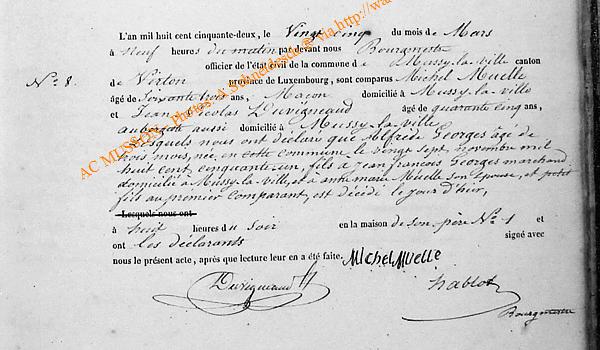 L'an mil huit cent cinquante-deux, le Vingt cinq du mois de Mars
à neuf heures du matin par devant nous Bourgmestre
officier de l'état civil de la commune de Mussy-la-ville canton
N° 8.
de Virton province de Luxembourg, sont comparus Michel Muelle
âgé de Soixante trois ans, Maçon domicilié à Mussy-la-ville
et Jean Nicolas Duvigneaud âgé de quarante cinq ans,
aubergiste aussi domicilié à Mussy-la-ville
Lesquels nous ont déclaré que Alfrède Georges âgé de
trois mois, née en cette commune le vingt sept novembre mil
huit cent cinquante un, fils à Jean françois Georges marchand
domicilié à Mussy la ville, et à anne marie Müelle son épouse, et petit
fils au premier Comparant, est décédé le jour d'hier,
Lesquels nous ont
à huit heures du Soir en la maison de son père N° 1 et
ont les déclarants signé avec
nous le présent acte, après que lecture leur en a été faite. Michel Muelle
Duvigneaud hablot
Bourgmestre
AC MUSSON - Photos: A Schneidesch © via http://wa